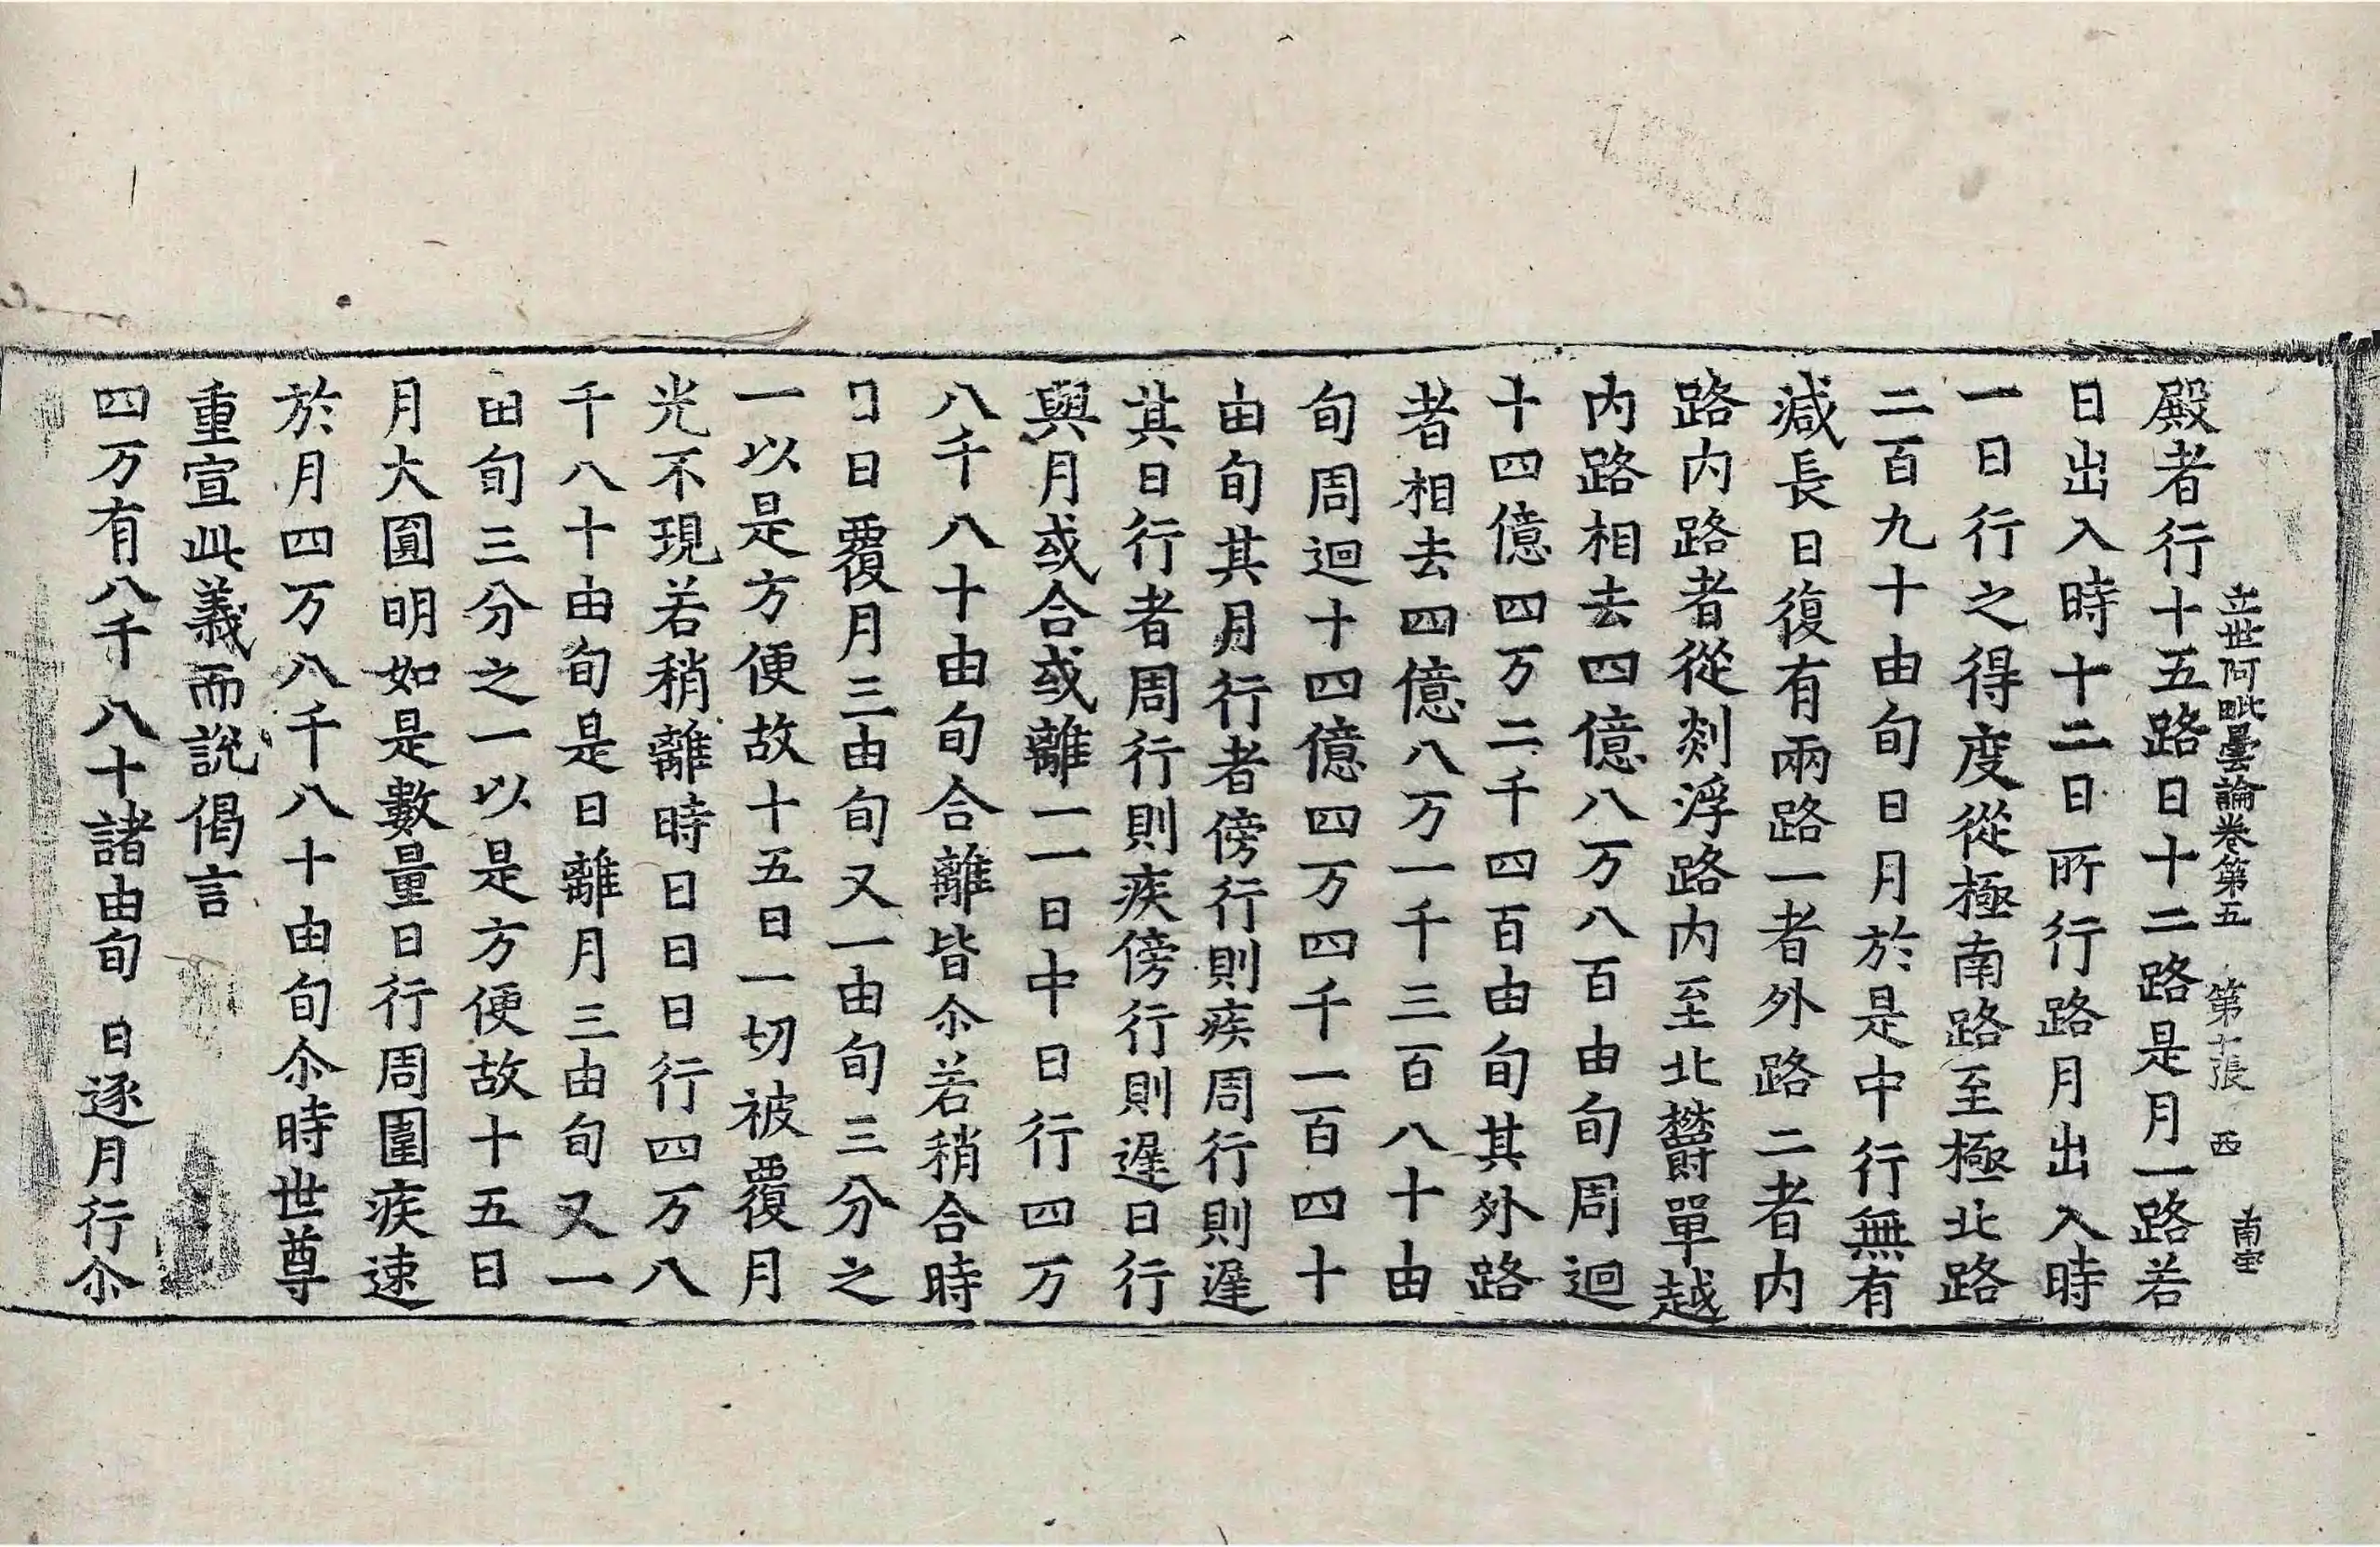 立世阿毗曇論卷第五 第十張 西 南宝
殿者行十五路日十二路是月一路若
日出入時十二日所行路月出入時
一日行之得度從極南路至極北路
二百九十由旬日月於是中行無有
減長日復有兩路一者外路二者內
路内路者從剡浮路内至北欝單越
内路相去四億八万八百由旬周迴
十四億四万二千四百由旬其外路
者相去四億八万一千三百八十由
旬周迴十四億四万四千一百四十
由旬其月行者傍行則疾周行則遲
其日行者周行則疾傍行則遲日行
與月或合或離一一日中日行四万
八千八十由旬合離皆尒若稍合時
日日覆月三由旬又一由旬三分之
一以是方便故十五日一切被覆月
光不現若稍離時日日日行四万八
千八十由旬是日離月三由旬又一
由旬三分之一以是方便故十五日
月大圓明如是數量日行周圍疾速
於月四万八千八十由旬尒時世尊
重宣此義而説偈言
四万有八千八十諸由旬 日逐月行尒